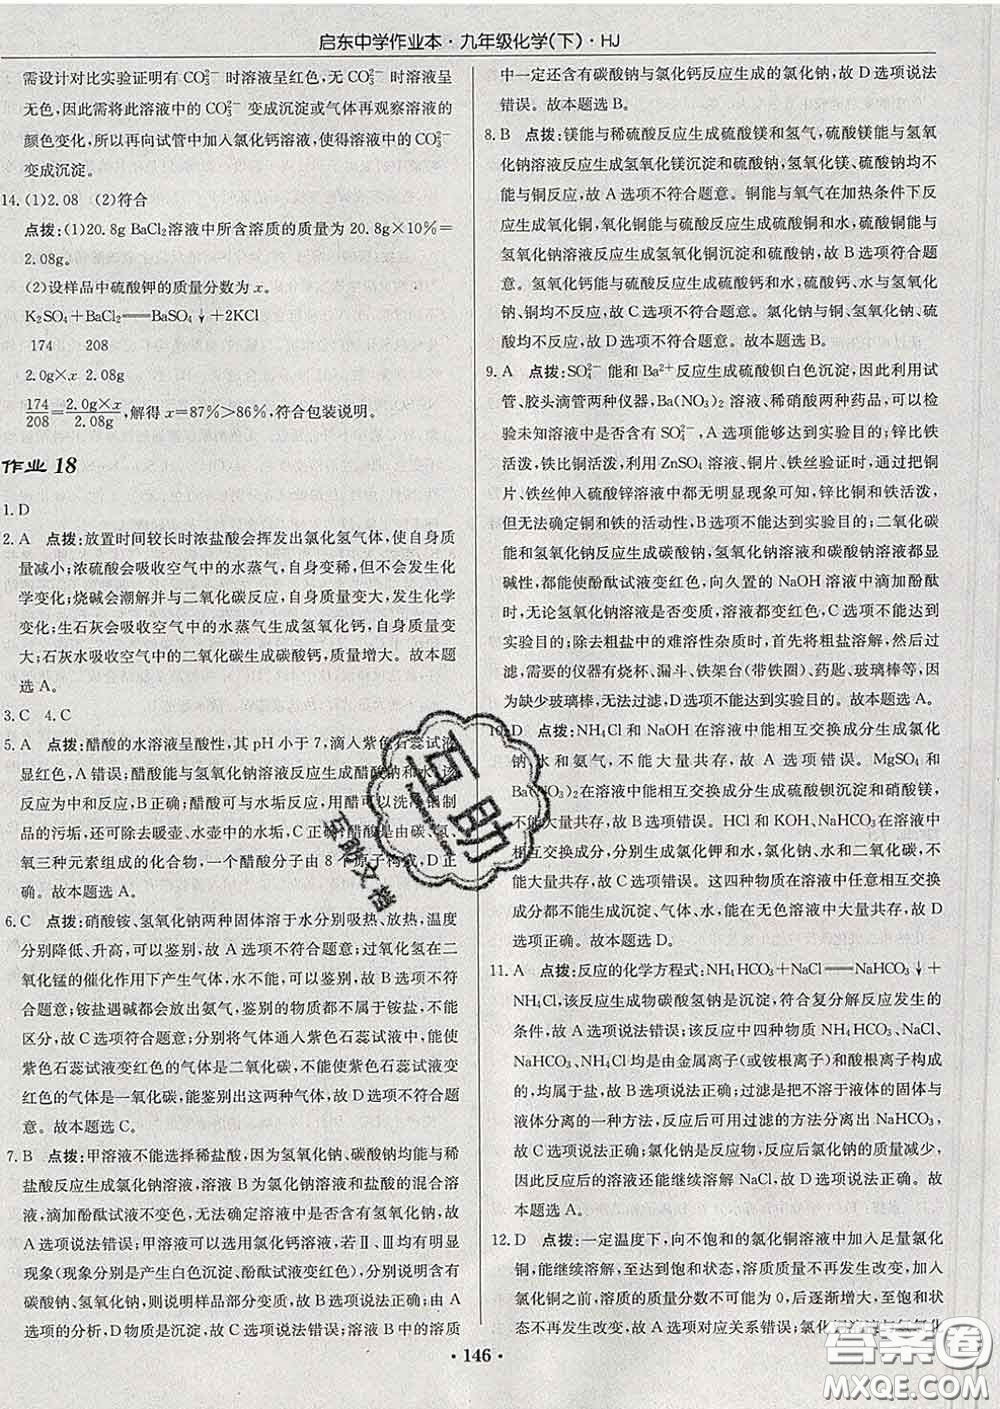 启东中学作业本·九年级化学(下)·HJ
需设计对比实验证明有CO₃²⁻时溶液呈红色,无CO₃²⁻时溶液呈
无色,因此需将此溶液中的CO₃²⁻变成沉淀或气体再观察溶液的
颜色变化,所以再向试管中加入氯化钙溶液,使得溶液中的CO₃²⁻
变成沉淀。
14.(1)2.08 (2)符合
点拨:(1)20.8g BaCl₂溶液中所含溶质的质量为20.8g×10%=
2.08g。
(2)设样品中硫酸钾的质量分数为x。
K₂SO₄+BaCl₂══BaSO₄↓+2KCl
174 208
2.0g×x 2.08g
174/208=2.0g×x/2.08g,解得x=87%>86%,符合包装说明。
作业 18
1.D
2.A 点拨:放置时间较长时浓盐酸会挥发出氯化氢气体,使自身质
量减小;浓硫酸会吸收空气中的水蒸气,自身变稀,但不会发生化
学变化;烧碱会潮解并与二氧化碳反应,发生化学变化,自身质量
变化;生石灰会吸收空气中的水蒸气生成氢氧化钙,自身质量增
大;石灰水吸收空气中的二氧化碳生成碳酸钙,质量增大。故本题
选A。
3.C 4.C
5.A 点拨:醋酸的水溶液呈酸性,其pH小于7,滴入紫色石蕊试液
显红色,A错误;醋酸能与氢氧化钠溶液反应生成醋酸钠和水,该
反应为中和反应,B正确;醋酸可与水垢反应,用醋可以洗涤铜制
品的污垢,还可除去暖壶、水壶中的水垢,C正确;醋酸是由碳、氢、
氧三种元素组成的化合物,一个醋酸分子由8个原子构成,D正
确。故本题选A。
6.C 点拨:硝酸铵、氢氧化钠两种固体溶于水分别吸热、放热,温度
分别降低、升高,可以鉴别,故A选项不符合题意;过氧化氢在二
氧化锰的催化作用下产生气体,水不能,可以鉴别,故B选项不符
合题意;铵盐遇碱都会放出氨气,鉴别的物质都属于铵盐,不能
区分,故C选项符合题意;分别将气体通入紫色石蕊试液中,能使
紫色石蕊试液变红色的气体是二氧化碳,不能使紫色石蕊试液变
红色的气体是一氧化碳,能鉴别出这两种气体,D选项不符合题
意。故本题选C。
7.B 点拨:甲溶液不能选择稀盐酸,因为氢氧化钠、碳酸钠均能与稀
盐酸反应生成氯化钠溶液,溶液B为氯化钠和盐酸的混合溶
液,滴加酚酞试液不变色,无法确定溶液中是否含有氢氧化钠,故
A选项说法错误;甲溶液可以选用氯化钙溶液,若Ⅱ、Ⅲ均有明显
现象(现象分别是产生白色沉淀、酚酞试液变红色),说明含有
碳酸钠、氢氧化钠,则说明样品部分变质,故B选项说法正确;由A
选项的分析,D物质是沉淀,故C选项说法错误;溶液B中的溶质
中一定还含有碳酸钠与氯化钙反应生成的氯化钠,故D选项说法
错误。故本题选B。
8.B 点拨:镁能与稀硫酸反应生成硫酸镁和氢气,硫酸镁能与氢氧
化钠溶液反应生成氢氧化镁沉淀和硫酸钠,氢氧化镁、硫酸钠均不
能与铜反应,故A选项不符合题意。铜能与氧气在加热条件下反
应生成氧化铜,氧化铜能与硫酸反应生成硫酸铜和水,硫酸铜能与
氢氧化钠溶液反应生成氢氧化铜沉淀和硫酸钠,故B选项符合题
意。氢氧化钙能与硫酸反应生成硫酸钙和水,硫酸钙不能与氯化
钠反应,故C选项不符合题意。氯化钠与铜、氢氧化钠、
硫酸均不反应,故D选项不符合题意。故本题选B。
9.A 点拨:SO₄²⁻能和Ba²⁺反应生成硫酸钡白色沉淀,因此利用试
管、胶头滴管两种仪器,Ba(NO₃)₂溶液、稀硝酸两种药品,可以检
验未知溶液中是否含有SO₄²⁻,A选项能够达到实验目的;锌比铁
活泼,铁比铜活泼,利用ZnSO₄溶液、铜片、铁丝时,分别把铜
片、铁丝伸入硫酸锌溶液中都无明显现象可知,锌比铜和铁活泼,
但无法确定铜和铁的活动性,B选项不能达到实验目的;二氧化碳
能和氢氧化钠反应生成碳酸钠,氢氧化钠溶液和碳酸钠溶液都显
碱性,都能使酚酞试液变红色,向久置的NaOH溶液中滴加酚酞
时,无论氢氧化钠溶液是否变质,溶液都变红色,C选项不能达到
实验目的;除去粗盐中的难溶性杂质时,首先将粗盐溶解,然后过
滤,需要的仪器有烧杯、漏斗、铁架台(带铁圈)、药匙、玻璃棒等,因
为缺少玻璃棒,无法过滤,D选项不能达到实验目的。故本题选A。
10.D 点拨:NH₄Cl和NaOH在溶液中能相互交换成分生成氯化
钠、水和氨气,不能大量共存,故A选项错误。MgSO₄和
Ba(NO₃)₂在溶液中能相互交换成分生成硫酸钡沉淀和硝酸镁,
不能大量共存,故B选项错误。HCl和KOH、Na₂CO₃在溶液中能
相互交换成分,分别生成氯化钾和水,氯化钠、水和二氧化碳,不
能大量共存,故C选项错误。这四种物质在溶液中任意相互交换
成分不能生成沉淀、气体、水,能在无色溶液中大量共存,故D
选项正确。故本题选D。
11.A 点拨:反应的化学方程式:NH₄HCO₃+NaCl══NaHCO₃↓+
NH₄Cl,该反应生成物碳酸氢钠是沉淀,符合复分解反应发生的
条件,故A选项说法错误;该反应中四种物质NH₄HCO₃、NaCl、
NaHCO₃、NH₄Cl均是由金属离子(或铵根离子)和酸根离子构成
的,均属于盐,故B选项说法正确;过滤是把不溶于液体的固体与
液体分离的一种方法,反应后可用过滤的方法分离出NaHCO₃,
故C选项说法正确;氯化钠是反应物,反应后氯化钠的质量减少,
因此反应后的溶液还能继续溶解NaCl,故D选项说法正确。故
本题选A。
12.D 点拨:一定温度下,向不饱和的氯化铜溶液中加入足量氯化
铜,能继续溶解,至达到饱和状态,溶液的质量分数不再发生改变,加入
氯化铜之前,溶质的质量分数不可能为0,后逐渐增大,至饱和状态
不再发生改变,故A选项对应关系错误;
·146·
互助
互助文档
答案圈
MXQE.COM